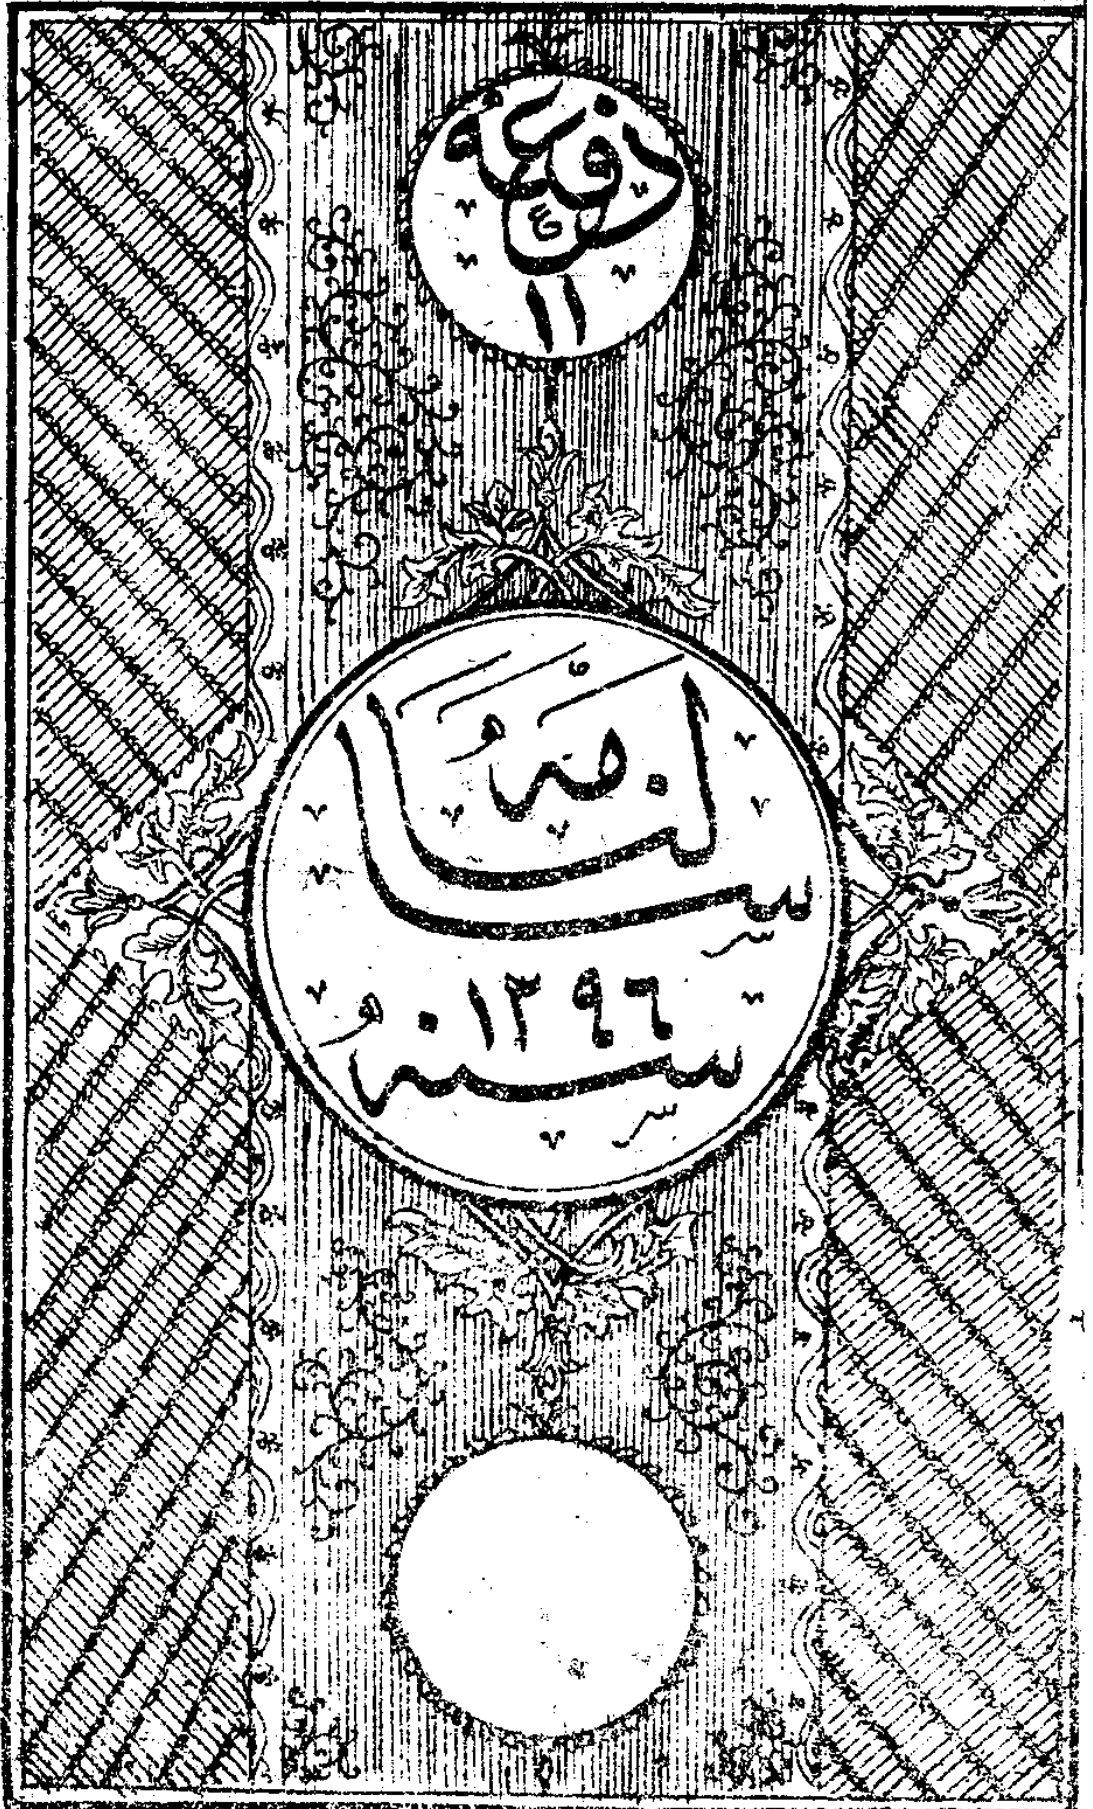 دفعه
١١
سالنامه
سنه ١٢٩٦